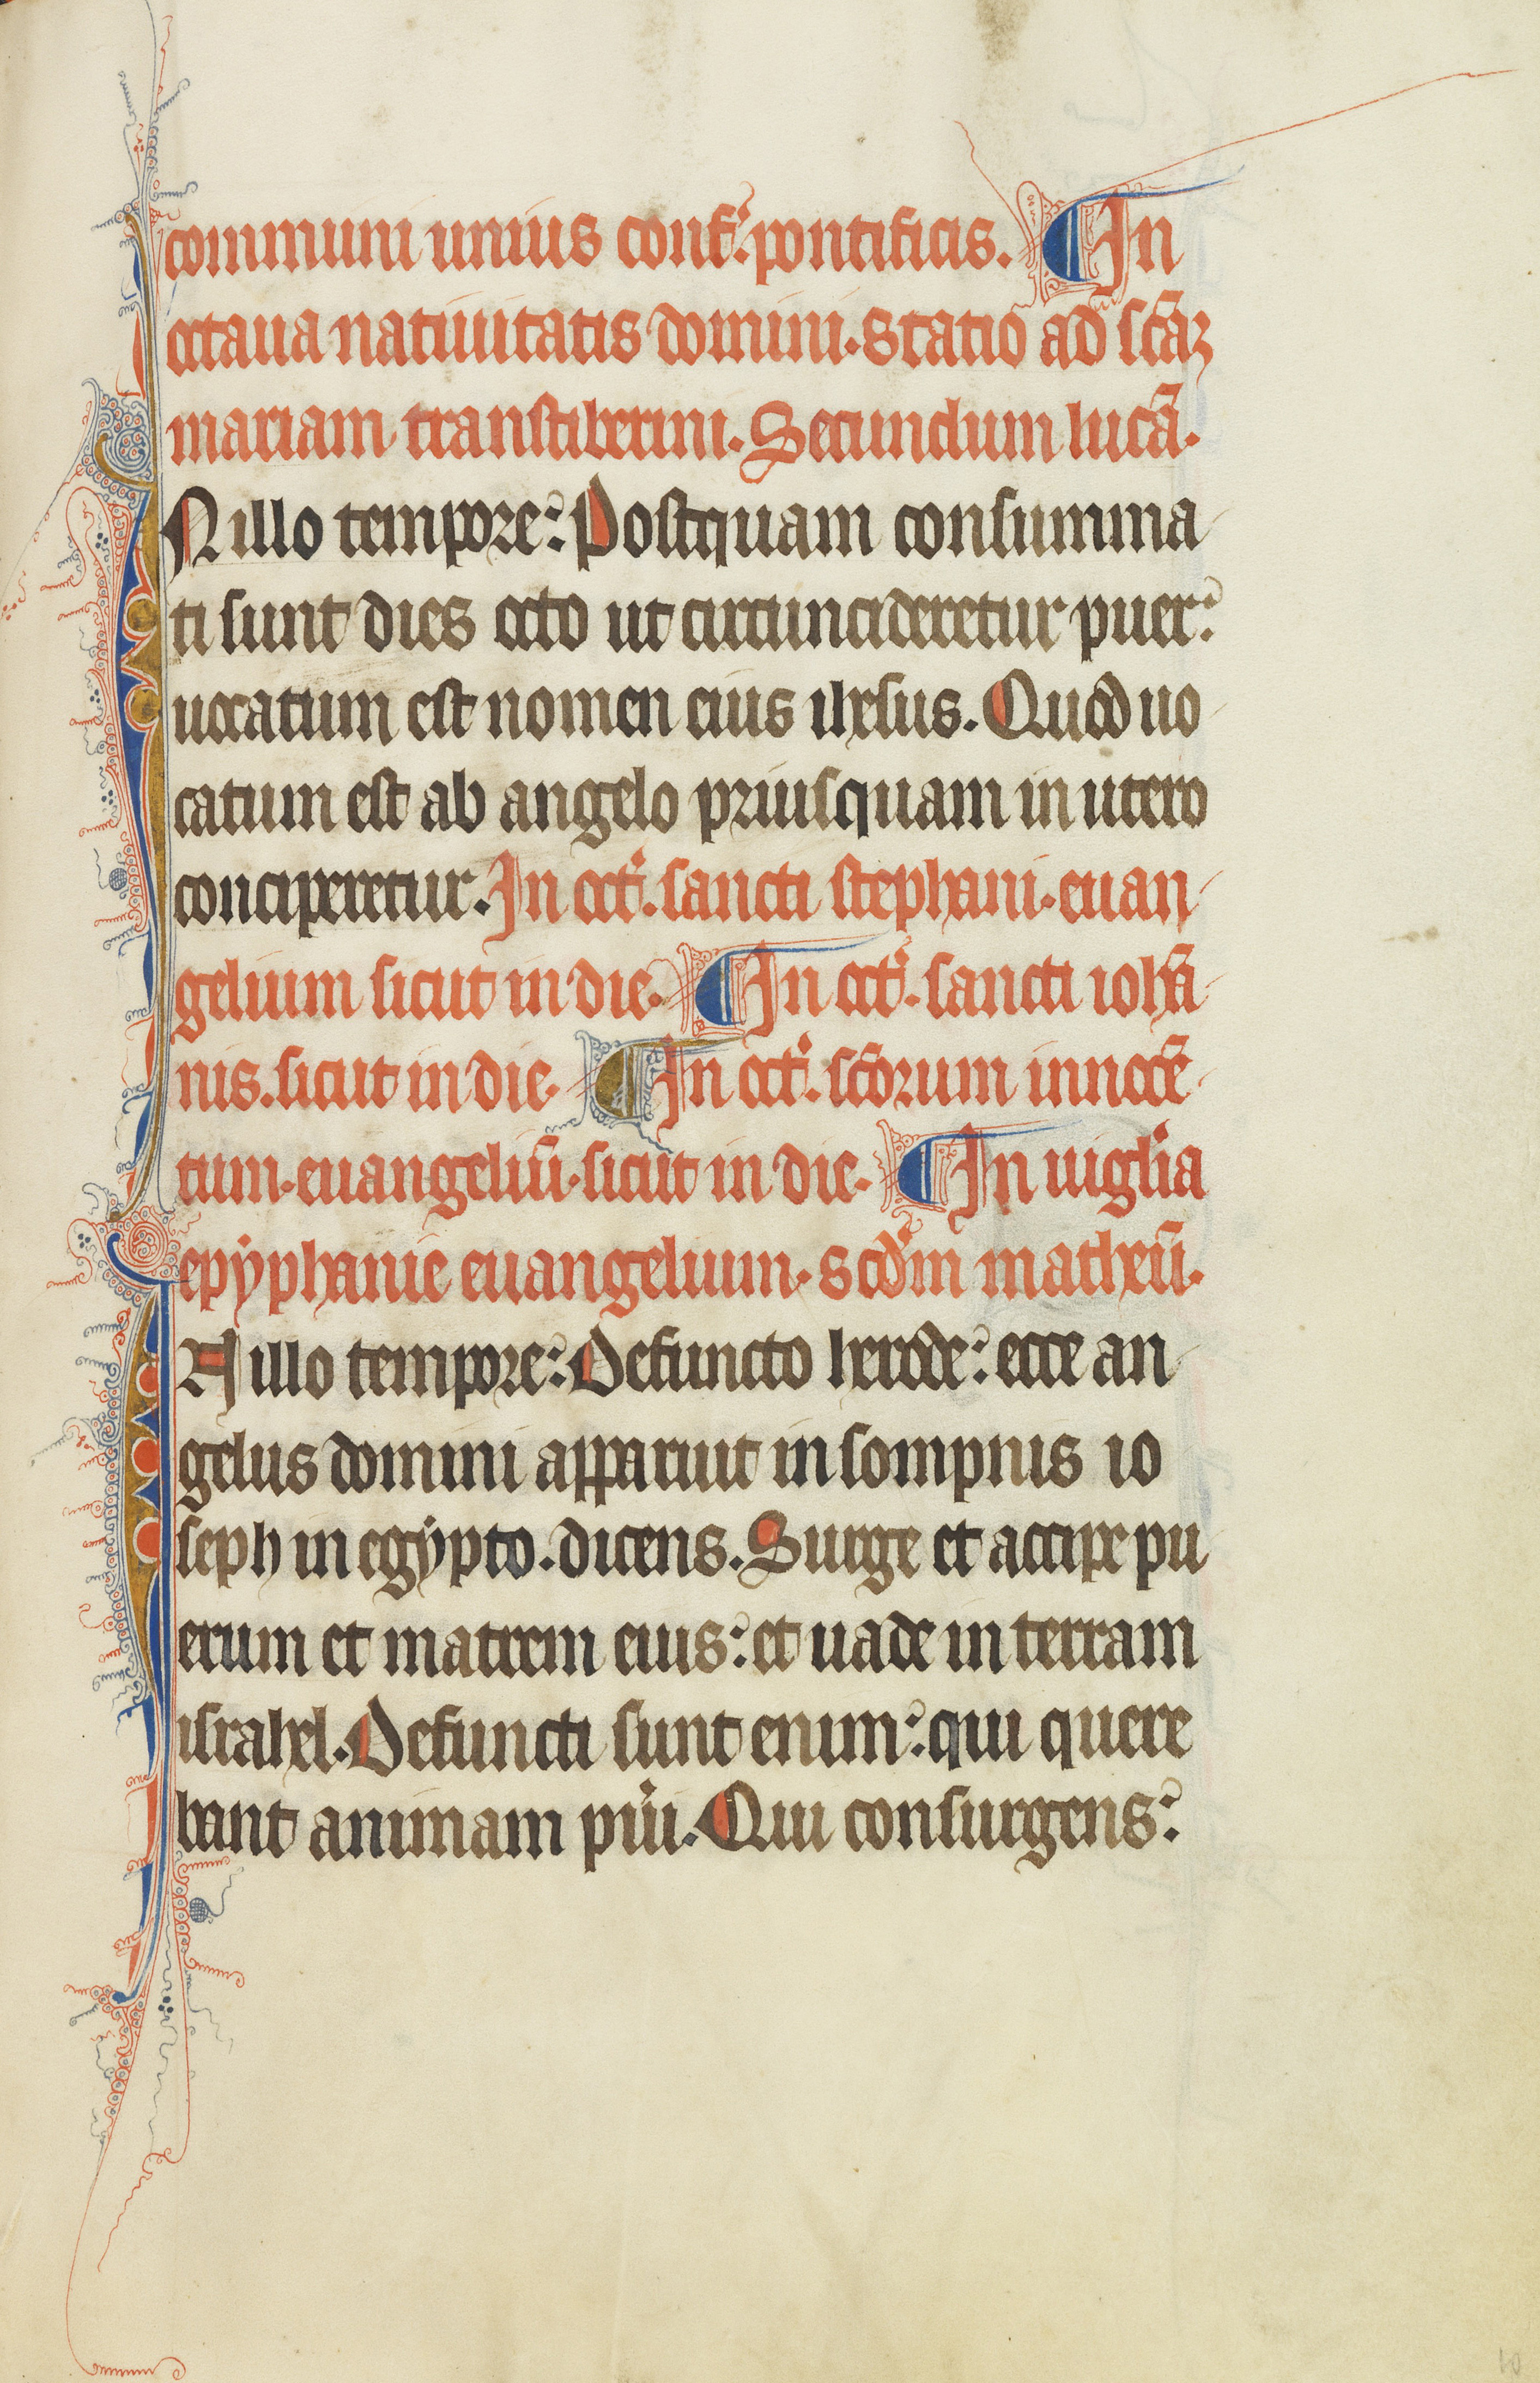 communi unius conf. pontificis. ¶ In
octaua natiuitatis domini. Statio ad scāꝫ
mariam transtiberim. Secundum lucā.
IN illo tempore: Postquam consumma-
ti sunt dies octo ut circuncideretur puer:
uocatum est nomen eius ihesus. Quod uo-
catum est ab angelo priusquam in utero
conciperetur. In oct. sancti stephani. euan-
gelium sicut in die. ¶ In oct. sancti iohā-
nis. sicut in die. ¶ In oct. scōrum innocē-
tum. euangeliū. sicut in die. ¶ In uiglia
epyphanie euangelium. scdm matheū.
IN illo tempore: Defuncto herode: ecce an-
gelus domini apparuit in sompnis io
seph in egypto. dicens. Surge et accipe pu-
erum et matrem eius: et uade in terram
israhel. Defuncti sunt enim: qui quere
bant animam pueri. Qui consurgens:
10